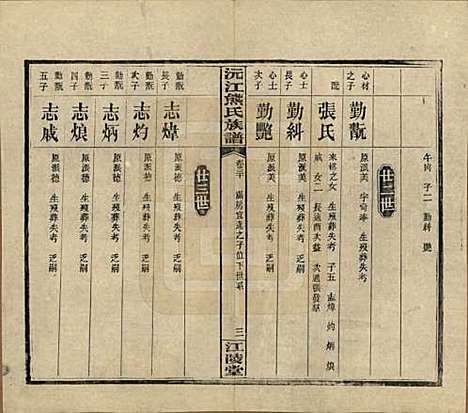 午向 子二 勤糾 艷
廿二世
心材之子 勤翫 原派美 字奇峰 生殁葬失考
配 張氏 來穆之女 生殁葬失考 子五 志煒 灼 炳 烺
戚 女二 長適酉次益 次適張發羣
心士長子 勤糾 原派美 生殁葬失考 乏嗣
心士次子 勤艷 原派美 生殁葬失考 乏嗣
沅江熊氏族譜
卷二十 萬房宜遠之子位下世系
三
江陵堂
廿三世
勤翫長子 志煒 原派德 生殁葬失考 乏嗣
勤翫次子 志灼 原派德 生殁葬失考 乏嗣
勤翫三子 志炳 原派德 生殁葬失考 乏嗣
勤翫四子 志烺 原派德 生殁葬失考 乏嗣
勤翫五子 志戚 原派德 生殁葬失考 乏嗣